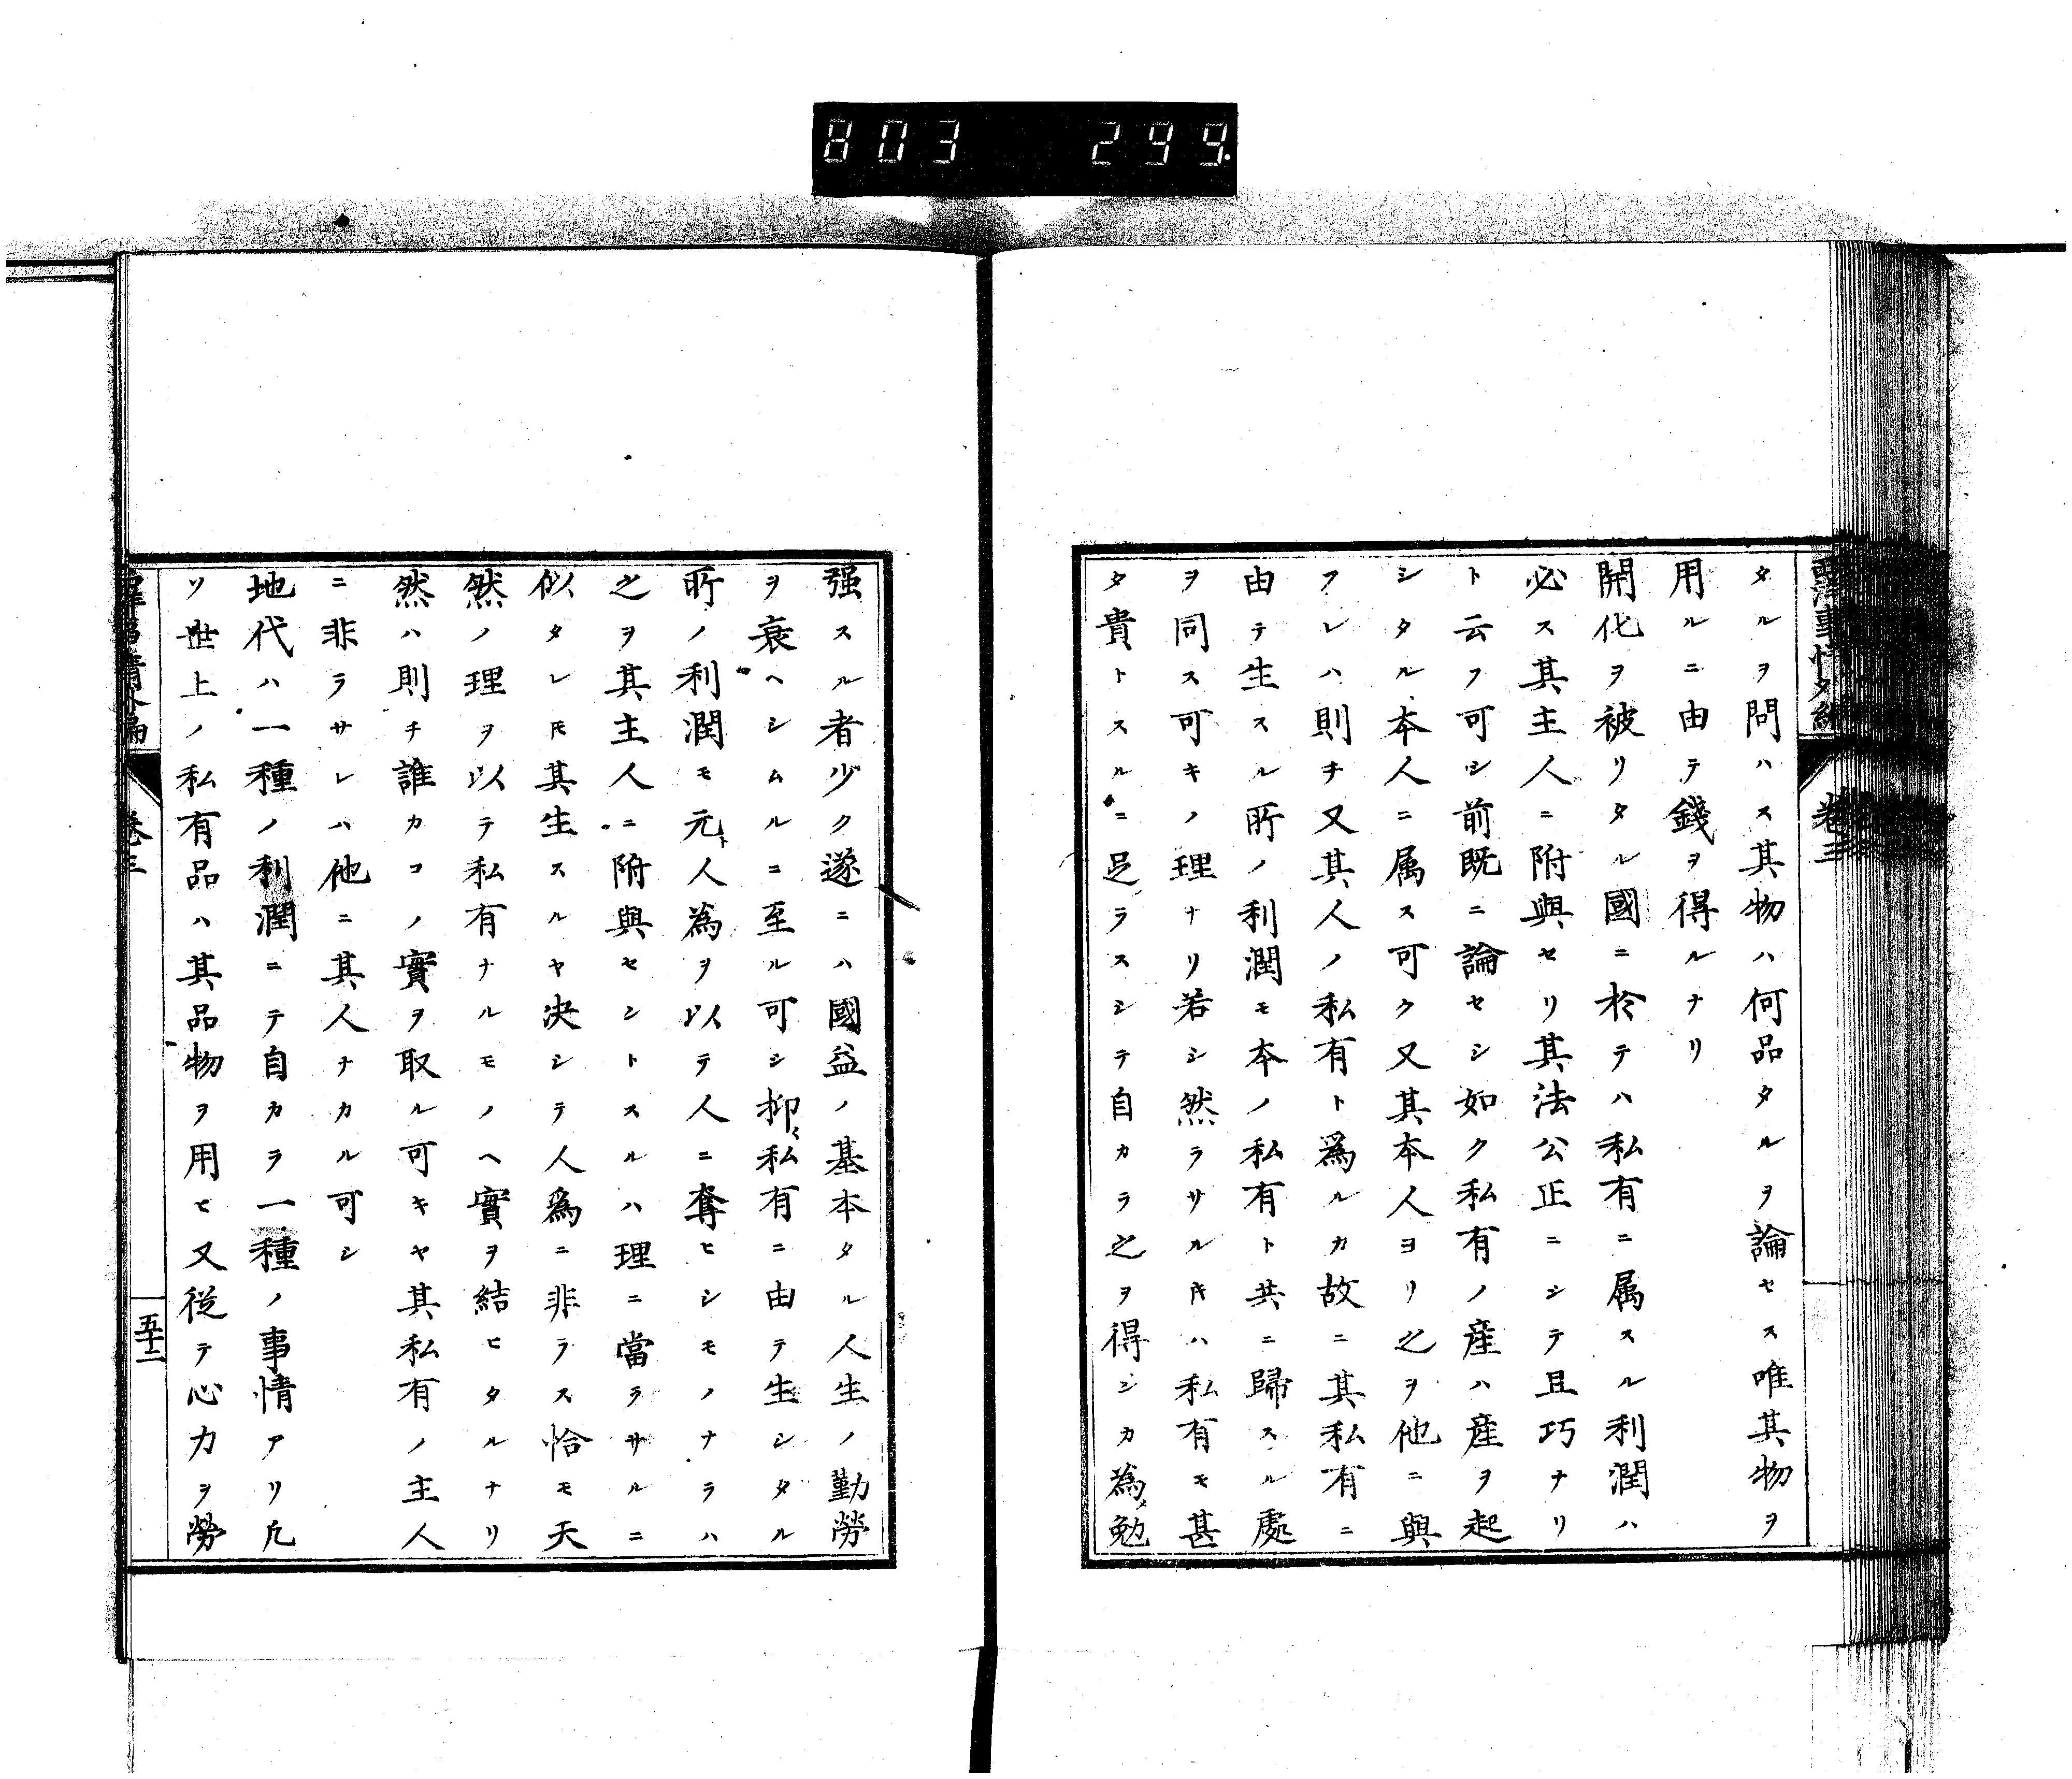 803 299
西洋事情外編
卷三
タルヲ問ハス其物ハ何品タルヲ論セス唯其物ヲ
用ルニ由テ錢ヲ得ルナリ
開化ヲ被リタル國ニ於テハ私有ニ属スル利潤ハ
必ス其主人ニ附與セリ其法公正ニシテ且巧ナリ
ト云フ可シ前既ニ論セシ如ク私有ノ産ハ産ヲ起
シタル本人ニ属ス可ク又其本人ヨリ之ヲ他ニ與
フレハ則チ又其人ノ私有ト爲ルカ故ニ其私有ニ
由テ生スル所ノ利潤モ本ノ私有ト共ニ歸スル處
ヲ同ス可キノ理ナリ若シ然ラサルヰハ私有モ甚
タ貴トスルニ足ラスシテ自カラ之ヲ得ンカ為メ勉
强スル者少ク遂ニハ國益ノ基本タル人生ノ勤勞
ヲ衰ヘシムルニ至ル可シ抑〻私有ニ由テ生シタル
所ノ利潤モ元ト人為ヲ以テ人ニ奪ヒシモノナラハ
之ヲ其主人ニ附與セントスルハ理ニ當ラサルニ
似タレ𪜈其生スルヤ决シテ人爲ニ非ラス恰モ天
然ノ理ヲ以テ私有ナルモノヘ實ヲ結ヒタルナリ
然ハ則チ誰カコノ實ヲ取ル可キヤ其私有ノ主人
ニ非ラサレハ他ニ其人ナカル可シ
地代ハ一種ノ利潤ニテ自カラ一種ノ事情アリ凡
ソ世上ノ私有品ハ其品物ヲ用ヒ又從テ心力ヲ勞
卷三
五十二